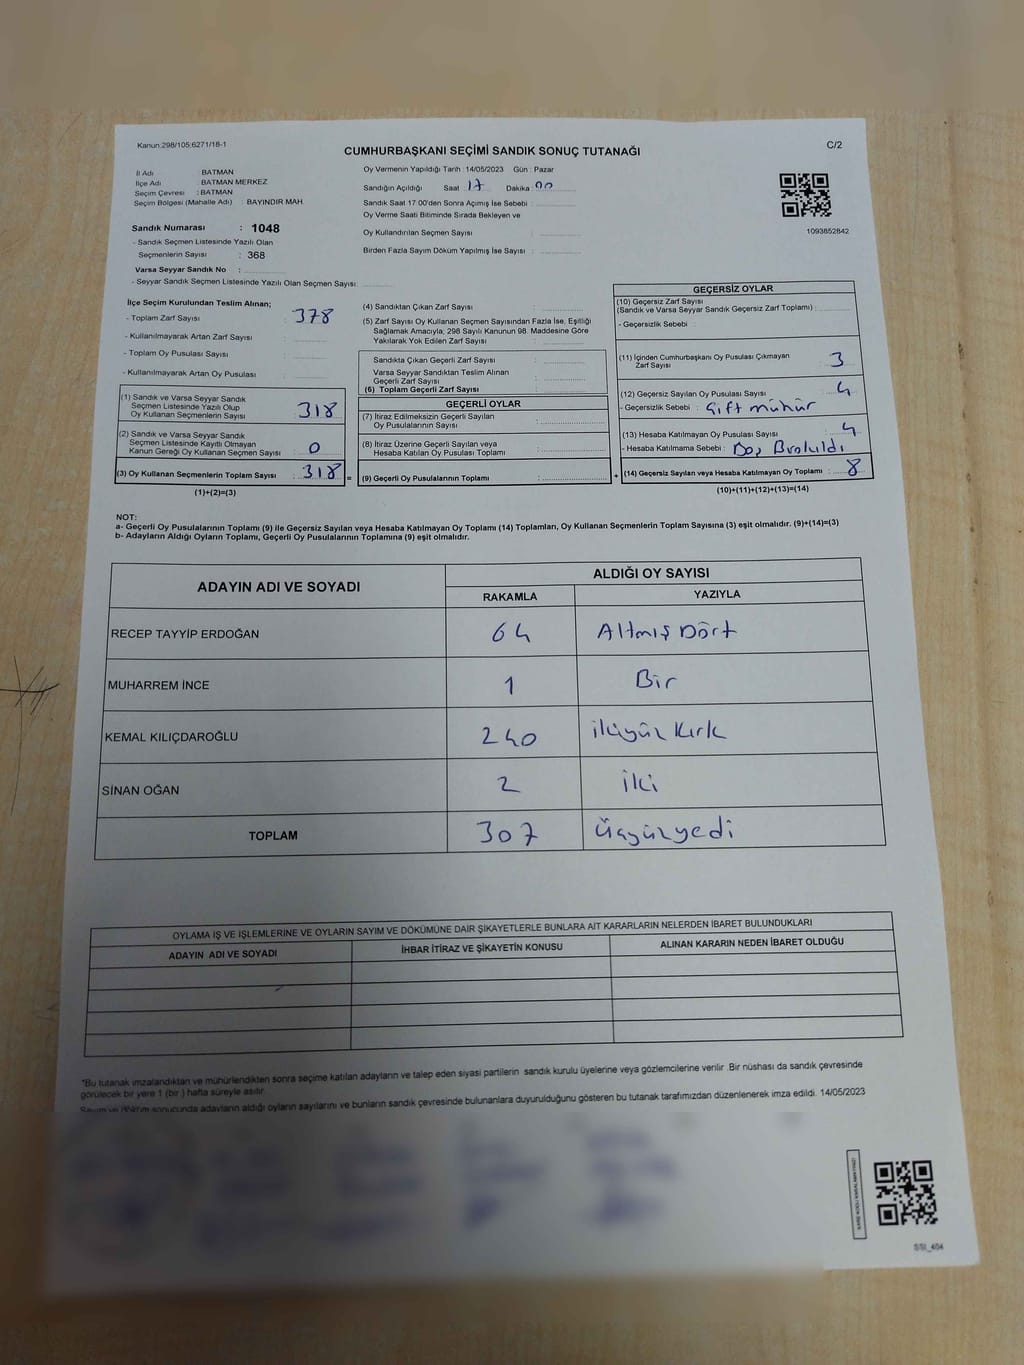 Kanun:298/105;6271/18-1
CUMHURBAŞKANI SEÇİMİ SANDIK SONUÇ TUTANAĞI
C/2
İl Adı : BATMAN
İlçe Adı : BATMAN MERKEZ
Seçim Çevresi : BATMAN
Seçim Bölgesi (Mahalle Adı) : BAYINDIR MAH.
Oy Vermenin Yapıldığı Tarih : 14/05/2023 Gün : Pazar
Sandığın Açıldığı Saat 17 Dakika 00
Sandık Saat 17:00'den Sonra Açımış İse Sebebi :
Oy Verme Saati Bitiminde Sırada Bekleyen ve
Oy Kullandırılan Seçmen Sayısı :
Birden Fazla Sayım Döküm Yapılmış İse Sayısı :
1093852842
Sandık Numarası : 1048
- Sandık Seçmen Listesinde Yazılı Olan
Seçmenlerin Sayısı : 368
Varsa Seyyar Sandık No :
- Seyyar Sandık Seçmen Listesinde Yazılı Olan Seçmen Sayısı:
İlçe Seçim Kurulundan Teslim Alınan;
- Toplam Zarf Sayısı : 378
- Kullanılmayarak Artan Zarf Sayısı :
- Toplam Oy Pusulası Sayısı :
- Kullanılmayarak Artan Oy Pusulası :
(1) Sandık ve Varsa Seyyar Sandık
Seçmen Listesinde Yazılı Olup
Oy Kullanan Seçmenlerin Sayısı : 318
(2) Sandık ve Varsa Seyyar Sandık
Seçmen Listesinde Kayıtlı Olmayan
Kanun Gereği Oy Kullanan Seçmen Sayısı : 0
(3) Oy Kullanan Seçmenlerin Toplam Sayısı : 318
(1)+(2)=(3)
(4) Sandıktan Çıkan Zarf Sayısı :
(5) Zarf Sayısı Oy Kullanan Seçmen Sayısından Fazla İse, Eşitliği
Sağlamak Amacıyla; 298 Sayılı Kanunun 98. Maddesine Göre
Yakılarak Yok Edilen Zarf Sayısı :
Sandıkta Çıkan Geçerli Zarf Sayısı :
Varsa Seyyar Sandıktan Teslim Alınan
Geçerli Zarf Sayısı :
(6) Toplam Geçerli Zarf Sayısı :
GEÇERLİ OYLAR
(7) İtiraz Edilmeksizin Geçerli Sayılan
Oy Pusulalarının Sayısı :
(8) İtiraz Üzerine Geçerli Sayılan veya
Hesaba Katılan Oy Pusulası Toplamı :
= (9) Geçerli Oy Pusulalarının Toplamı :
GEÇERSİZ OYLAR
(10) Geçersiz Zarf Sayısı
(Sandık ve Varsa Seyyar Sandık Geçersiz Zarf Toplamı) :
- Geçersizlik Sebebi :
(11) İçinden Cumhurbaşkanı Oy Pusulası Çıkmayan
Zarf Sayısı : 3
(12) Geçersiz Sayılan Oy Pusulası Sayısı : 4
- Geçersizlik Sebebi : Çift mühür
(13) Hesaba Katılmayan Oy Pusulası Sayısı : 4
- Hesaba Katılmama Sebebi : Boş Bırakıldı
+ (14) Geçersiz Sayılan veya Hesaba Katılmayan Oy Toplamı : 8
(10)+(11)+(12)+(13)=(14)
NOT:
a- Geçerli Oy Pusulalarının Toplamı (9) ile Geçersiz Sayılan veya Hesaba Katılmayan Oy Toplamı (14) Toplamları, Oy Kullanan Seçmenlerin Toplam Sayısına (3) eşit olmalıdır. (9)+(14)=(3)
b- Adayların Aldığı Oyların Toplamı, Geçerli Oy Pusulalarının Toplamına (9) eşit olmalıdır.
ADAYIN ADI VE SOYADI
ALDIĞI OY SAYISI
RAKAMLA YAZIYLA
RECEP TAYYİP ERDOĞAN 64 Altmış Dört
MUHARREM İNCE 1 Bir
KEMAL KILIÇDAROĞLU 240 ikiyüz kırk
SİNAN OĞAN 2 iki
TOPLAM 307 üçyüzyedi
OYLAMA İŞ VE İŞLEMLERİNE VE OYLARIN SAYIM VE DÖKÜMÜNE DAİR ŞİKAYETLERLE BUNLARA AİT KARARLARIN NELERDEN İBARET BULUNDUKLARI
ADAYIN ADI VE SOYADI İHBAR İTİRAZ VE ŞİKAYETİN KONUSU ALINAN KARARIN NEDEN İBARET OLDUĞU
*Bu tutanak imzalandıktan ve mühürlendikten sonra seçime katılan adayların ve talep eden siyasi partilerin sandık kurulu üyelerine veya gözlemcilerine verilir. Bir nüshası da sandık çevresinde
görülecek bir yere 1 (bir) hafta süreyle asılır.
Sayım ve döküm sonucunda adayların aldığı oyların sayılarını ve bunların sandık çevresinde bulunanlara duyurulduğunu gösteren bu tutanak tarafımızdan düzenlenerek imza edildi. 14/05/2023
SSI_404